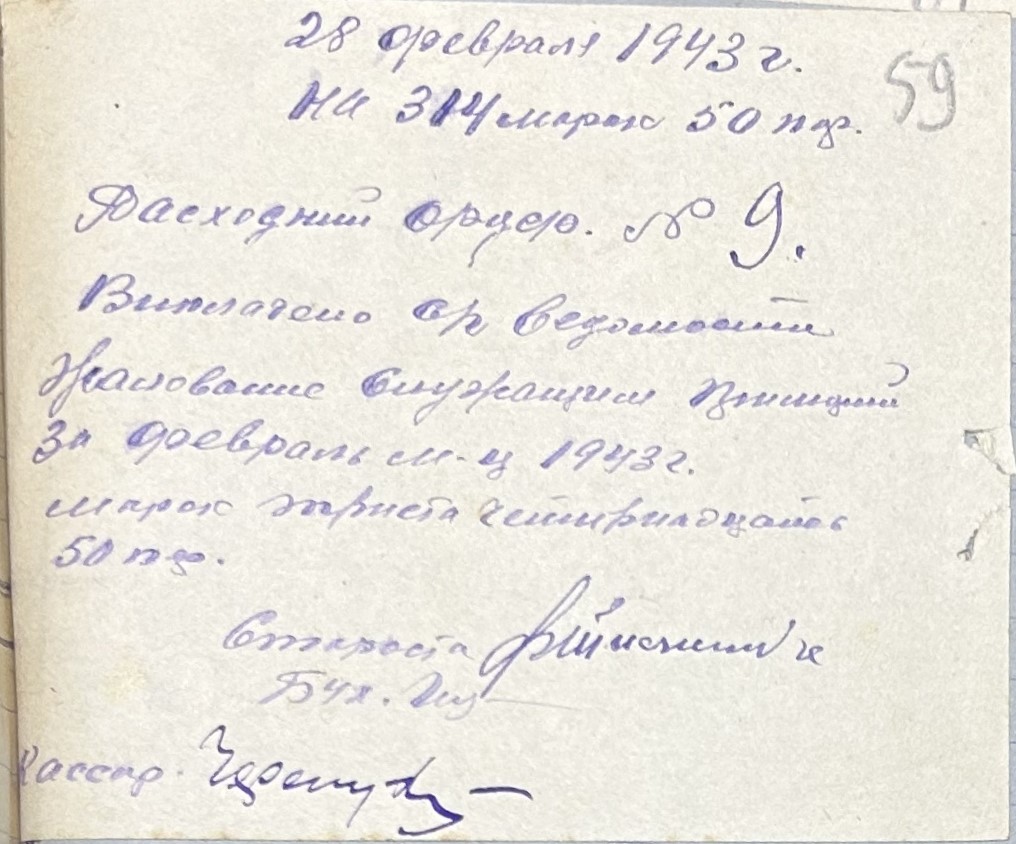 28 февраля 1943 г.
59
На 314 марок 50 пф.
Расходний ордер. № 9.
Виплачено ср ведомости
Жалование служащим полиций
За февраль м-ц 1943 г.
марок триста четирнадцать
50 пф.
Староста
Бух.
Кассир